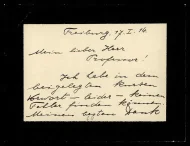 Freiburg 17. I. 14.
Mein lieber Herr
Professor!
Ich habe in dem
beigelegten kurzen
leider keinen
Fehler finden können.
Meinen besten Dank